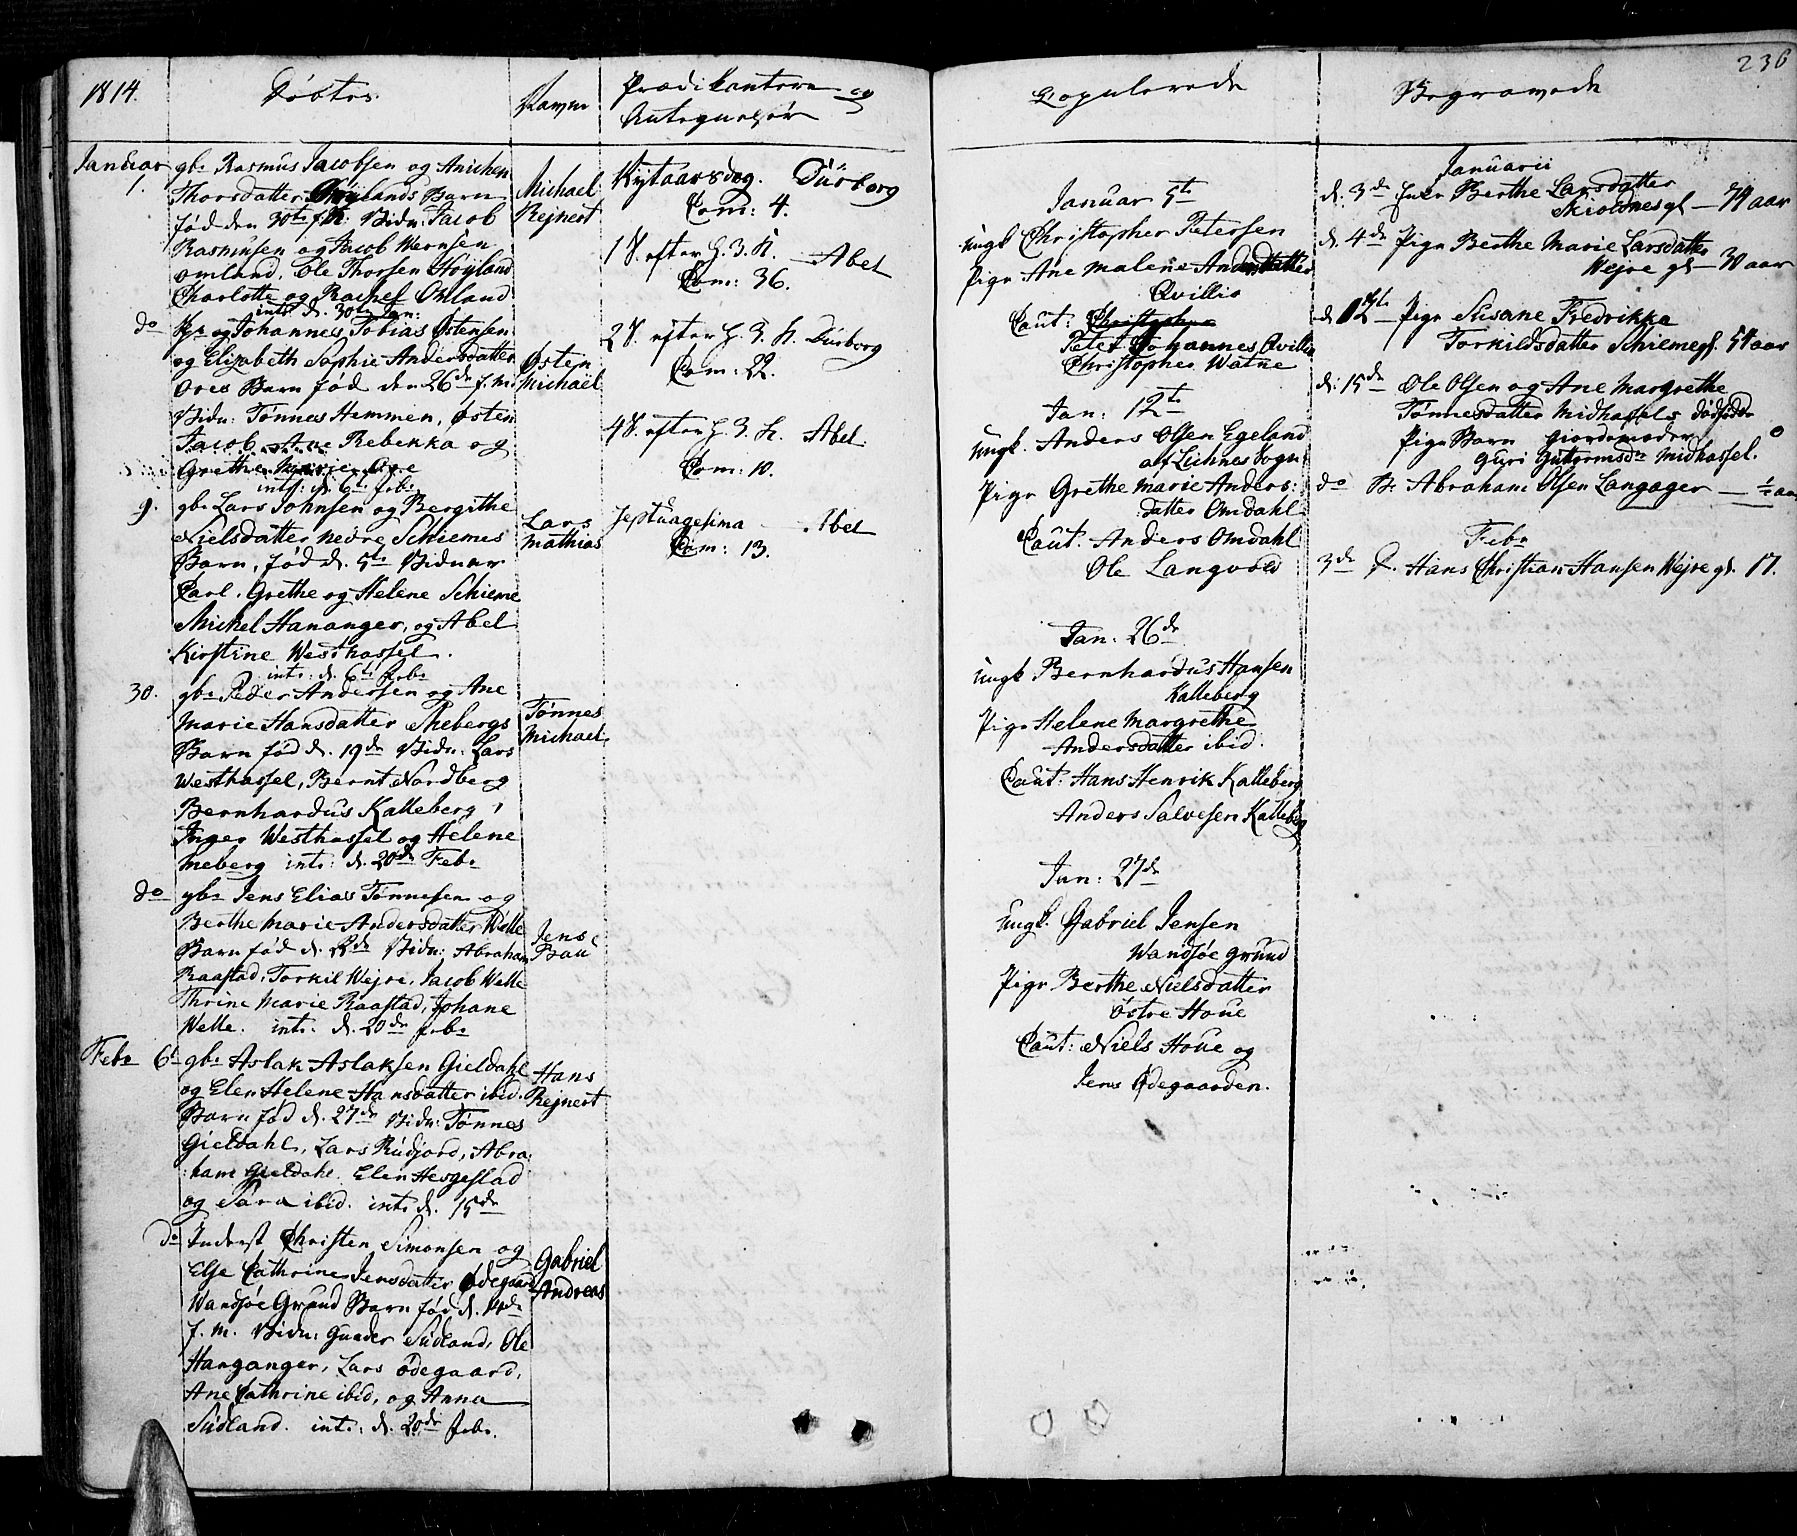 236
1814.
Döbte.
Navne
Prædikantere og
Antegnelser
Januar
1.
gbr Rasmus Jacobsen og Anichen
Thorsdatter Höylands Barn
född den 30te f.M. Vidn: Jacob
Rasmusen og Jacob Wernsen
Omland, Ole Thorsen Höyland
Charlotte og Rachel Omland
intr. d. 30te Jan:
Michael
Rejnert
do
og Johannes Tobias Østensen
og Elizabeth Sophie Andersdatter
Ores Barn född den 26de f.M.
Vidn: Tønnes Hemmen, Østen
Jacob, Ane Rebekka og
Grethe Marie Ore
intr: d. 6te Febr
Østen
Michael
9.
gbr Lars Johnsen og Bergithe
Nielsdatter nedre Schiemes
Barn, född d. 5te Vidner
Carl, Grethe og Helene Schieme
Michel Hananger, og Abel
Kirstine Westhassel.
intr: d. 6te Febr
Lars
Mathias
30.
gbr Peder Andersen og Ane
Marie Hansdatter Ihebergs
Barn född d. 19de Vidn: Lars
Westhassel, Bernt Nordberg
Bernhardus Kalleberg,
Inger Westhassel og Helene
Ineberg intr: d. 20de Febr
Tønnes
Michael
do
gbr Jens Elias Tønnesen og
Berthe Marie Andersdatter Welle
Barn född d. 22de Vidn: Abraham
Raastad, Torkil Wejre, Jacob Welle
Thrine Marie Raastad, Johane
Welle. intr. d. 20de Febr
Jens
Bau
Febr 6te
gbr Aslak Aslaksen Gieldahl
og Elen Helene Hansdatter ibid.
Barn född d. 27de Vidn: Tønnes
Gieldahl, Lars Rudjord, Abra:
ham Gieldahl. Elen Hesgestad
og Sara ibid. intr d. 15de
Hans
Rejnert
do
Inderst Christen Simonsen og
Else Cathrine Jensdatter Ödegaard
Wandsöe Grund Barn född d. 14de
f.M. Vidn: Gunder Sudland, Ole
Hananger, Lars Ödegaard,
Ane Cathrine ibid, og Anna
Sudland. intr: d. 20de Febr.
Gabriel
Andreas
Nytaarsdag. Durborg
Com: 4.
1 S. efter H. 3. K. — Abel
Com: 36.
2 S. efter H. 3. K. Durborg
Com: 22.
4 S. efter H. 3. K. Abel
Com: 10.
Septuagesima — Abel
Com: 13.
Copulerede
Januar 5te
Ungk Christopher Petersen
Pige Ane Malene Andersdatter
Qvillio
Caut: Christopher
Peter Johannes Qvillio
Christopher Watne
Jan: 12te
Ungk. Anders Olsen Egeland
af Liehnes Sogn
Pige Grethe Marie Anders:
datter Omdahl
Caut. Anders Omdahl
Ole Langvold
Jan: 26de
Ungk Bernhardus Hansen
Kalleberg
Pige Helene Margrethe
Andersdatter ibid.
Caut: Hans Henrik Kalleberg
Anders Salvesen Kalleberg
Jan: 27de
Ungk. Gabriel Jensen
Wandsöe grund
Pige Berthe Nielsdatter
Østre Houe
Caut: Niels Houe og
Jens Ødegaarden.
Begravede
Januarii
d. 3de Enke Berthe Larsdatter
Skiolnes gl — 74 aar
d. 4de Pige Berthe Marie Larsdatter
Wejre gl — 30 aar
d. 12te Pige Susane Fredrikka
Torkildsdatter Schieme gl. 54 aar
d: 15de Ole Olsen og Ane Margrethe
Tønnesdatter Midhassels dödföd
Pige Barn giordemoder
Guri Guttormsdr Midhassel. 0
do B. Abraham Olsen Langager — 1/2 aar
Febr
3de Hans Christian Hansen Wejre gl. 17.